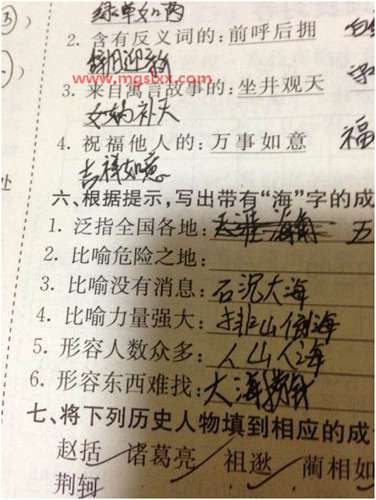 绿草如茵
2. 含有反义词的:前呼后拥
辞旧迎新
www.mgslxx.com
3. 来自寓言故事的:坐井观天
女娲补天
4. 祝福他人的:万事如意 福
吉祥如意
六、根据提示,写出带有“海”字的成
1. 泛指全国各地: 五
2. 比喻危险之地:
3. 比喻没有消息:石沉大海
4. 比喻力量强大:排山倒海
5. 形容人数众多:人山人海
6. 形容东西难找:大海捞针
七、将下列历史人物填到相应的成
赵括 诸葛亮 祖逖 蔺相如
荆轲